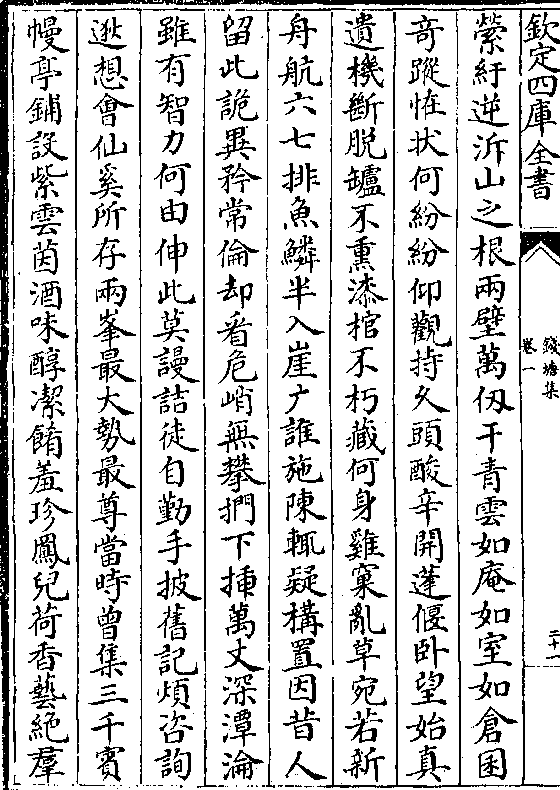 欽定四庫全書
錢塘集
卷一
二十一
縈紆逆泝山之根兩壁萬仭干青雲如庵如室如倉囷
奇蹤恠狀何紛紛仰觀持久頭酸辛開蓬偃卧望始真
遺機斷脱罏不熏漆棺不朽藏何身雞窠亂草宛若新
舟航六七排魚鱗半入崖广誰施陳輒疑構置因昔人
留此詭異矜常倫却看危峭無攀捫下挿萬丈深潭淪
雖有智力何由伸此莫謾詰徒自勤手披舊記煩咨詢
逖想會仙奚所存兩峯最大勢最尊當時曾集三千賓
幔亭鋪設紫雲茵酒味醇潔餚羞珍鳳兒荷香藝絶羣